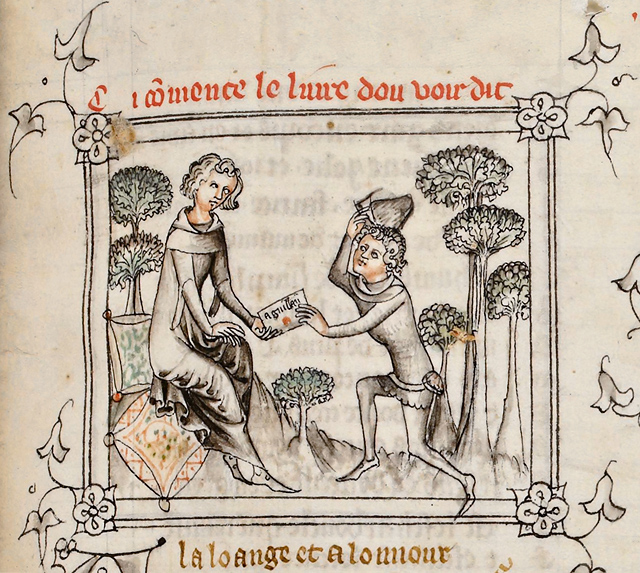 Ci cõmence le liure dou voir dit
A guillem
A la loange et a lonnour